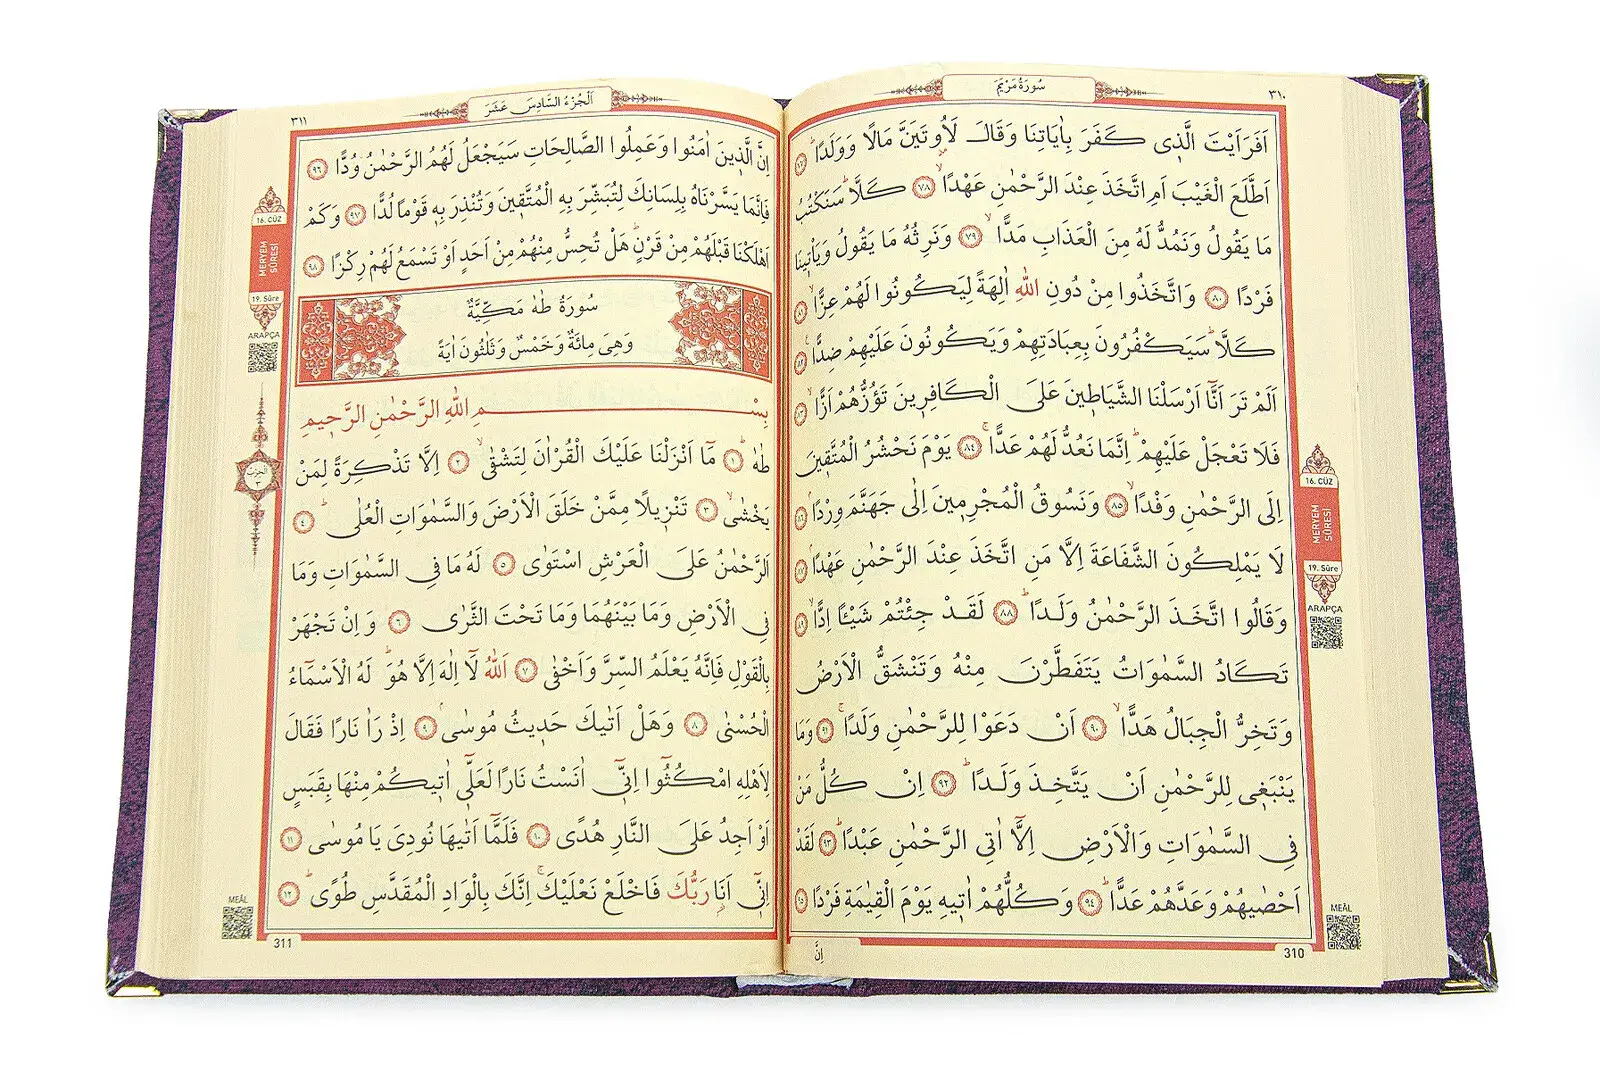 ٣١٠
سُورَةُ مَرْيَمَ
اَفَرَاَيْتَ الَّذ۪ي كَفَرَ بِاٰيَاتِنَا وَقَالَ لَاُو۫تَيَنَّ مَالًا وَوَلَدًاۜ ﴿٧٧﴾
اَطَّلَعَ الْغَيْبَ اَمِ اتَّخَذَ عِنْدَ الرَّحْمٰنِ عَهْدًاۙ ﴿٧٨﴾ كَلَّاۜ سَنَكْتُبُ
مَا يَقُولُ وَنَمُدُّ لَهُ مِنَ الْعَذَابِ مَدًّاۙ ﴿٧٩﴾ وَنَرِثُهُ مَا يَقُولُ وَيَأْت۪ينَا
فَرْدًا ﴿٨٠﴾ وَاتَّخَذُوا مِنْ دُونِ اللّٰهِ اٰلِهَةً لِيَكُونُوا لَهُمْ عِزًّاۙ ﴿٨١﴾
كَلَّاۜ سَيَكْفُرُونَ بِعِبَادَتِهِمْ وَيَكُونُونَ عَلَيْهِمْ ضِدًّا۟ ﴿٨٢﴾
اَلَمْ تَرَ اَنَّٓا اَرْسَلْنَا الشَّيَاط۪ينَ عَلَى الْكَافِر۪ينَ تَؤُزُّهُمْ اَزًّاۙ ﴿٨٣﴾
فَلَا تَعْجَلْ عَلَيْهِمْۜ اِنَّمَا نَعُدُّ لَهُمْ عَدًّاۚ ﴿٨٤﴾ يَوْمَ نَحْشُرُ الْمُتَّق۪ينَ
اِلَى الرَّحْمٰنِ وَفْدًاۙ ﴿٨٥﴾ وَنَسُوقُ الْمُجْرِم۪ينَ اِلٰى جَهَنَّمَ وِرْدًاۢ ﴿٨٦﴾
لَا يَمْلِكُونَ الشَّفَاعَةَ اِلَّا مَنِ اتَّخَذَ عِنْدَ الرَّحْمٰنِ عَهْدًاۢ ﴿٨٧﴾
وَقَالُوا اتَّخَذَ الرَّحْمٰنُ وَلَدًاۜ ﴿٨٨﴾ لَقَدْ جِئْتُمْ شَيْـًٔا اِدًّاۙ ﴿٨٩﴾
تَكَادُ السَّمٰوَاتُ يَتَفَطَّرْنَ مِنْهُ وَتَنْشَقُّ الْاَرْضُ
وَتَخِرُّ الْجِبَالُ هَدًّاۙ ﴿٩٠﴾ اَنْ دَعَوْا لِلرَّحْمٰنِ وَلَدًاۚ ﴿٩١﴾ وَمَا
يَنْبَغ۪ي لِلرَّحْمٰنِ اَنْ يَتَّخِذَ وَلَدًاۜ ﴿٩٢﴾ اِنْ كُلُّ مَنْ
فِي السَّمٰوَاتِ وَالْاَرْضِ اِلَّٓا اٰتِي الرَّحْمٰنِ عَبْدًاۜ ﴿٩٣﴾ لَقَدْ
اَحْصٰيهُمْ وَعَدَّهُمْ عَدًّاۜ ﴿٩٤﴾ وَكُلُّهُمْ اٰت۪يهِ يَوْمَ الْقِيٰمَةِ فَرْدًا ﴿٩٥﴾
16. CÜZ
MERYEM
SÛRESİ
19. Sûre
ARAPÇA
MEÂL
310
اِنَّ
اَلْجُزْءُ السَّادِسَ عَشَرَ
٣١١
اِنَّ الَّذ۪ينَ اٰمَنُوا وَعَمِلُوا الصَّالِحَاتِ سَيَجْعَلُ لَهُمُ الرَّحْمٰنُ وُدًّا ﴿٩٦﴾
فَاِنَّمَا يَسَّرْنَاهُ بِلِسَانِكَ لِتُبَشِّرَ بِهِ الْمُتَّق۪ينَ وَتُنْذِرَ بِه۪ قَوْمًا لُدًّا ﴿٩٧﴾ وَكَمْ
اَهْلَكْنَا قَبْلَهُمْ مِنْ قَرْنٍۜ هَلْ تُحِسُّ مِنْهُمْ مِنْ اَحَدٍ اَوْ تَسْمَعُ لَهُمْ رِكْزًا ﴿٩٨﴾
سُورَةُ طٰهٰ مَكِّيَّةٌ
وَهِيَ مِائَةٌ وَخَمْسٌ وَثَلٰثُونَ اٰيَةً
بِسْمِ اللّٰهِ الرَّحْمٰنِ الرَّح۪يمِ
طٰهٰۜ ﴿١﴾ مَٓا اَنْزَلْنَا عَلَيْكَ الْقُرْاٰنَ لِتَشْقٰىۙ ﴿٢﴾ اِلَّا تَذْكِرَةً لِمَنْ
يَخْشٰىۙ ﴿٣﴾ تَنْز۪يلًا مِمَّنْ خَلَقَ الْاَرْضَ وَالسَّمٰوَاتِ الْعُلٰىۜ ﴿٤﴾
اَلرَّحْمٰنُ عَلَى الْعَرْشِ اسْتَوٰى ﴿٥﴾ لَهُ مَا فِي السَّمٰوَاتِ وَمَا
فِي الْاَرْضِ وَمَا بَيْنَهُمَا وَمَا تَحْتَ الثَّرٰى ﴿٦﴾ وَاِنْ تَجْهَرْ
بِالْقَوْلِ فَاِنَّهُ يَعْلَمُ السِّرَّ وَاَخْفٰى ﴿٧﴾ اَللّٰهُ لَٓا اِلٰهَ اِلَّا هُوَۜ لَهُ الْاَسْمَٓاءُ
الْحُسْنٰى ﴿٨﴾ وَهَلْ اَتٰيكَ حَد۪يثُ مُوسٰىۢ ﴿٩﴾ اِذْ رَاٰ نَارًا فَقَالَ
لِاَهْلِهِ امْكُثُٓوا اِنّ۪ٓي اٰنَسْتُ نَارًا لَعَلّ۪ٓي اٰت۪يكُمْ مِنْهَا بِقَبَسٍ
اَوْ اَجِدُ عَلَى النَّارِ هُدًى ﴿١٠﴾ فَلَمَّٓا اَتٰيهَا نُودِيَ يَا مُوسٰى ﴿١١﴾
اِنّ۪ٓي اَنَا۬ رَبُّكَ فَاخْلَعْ نَعْلَيْكَۚ اِنَّكَ بِالْوَادِ الْمُقَدَّسِ طُوًىۜ ﴿١٢﴾
16. CÜZ
MERYEM
SÛRESİ
19. Sûre
ARAPÇA
اَلْحِزْبُ
٣
MEÂL
311